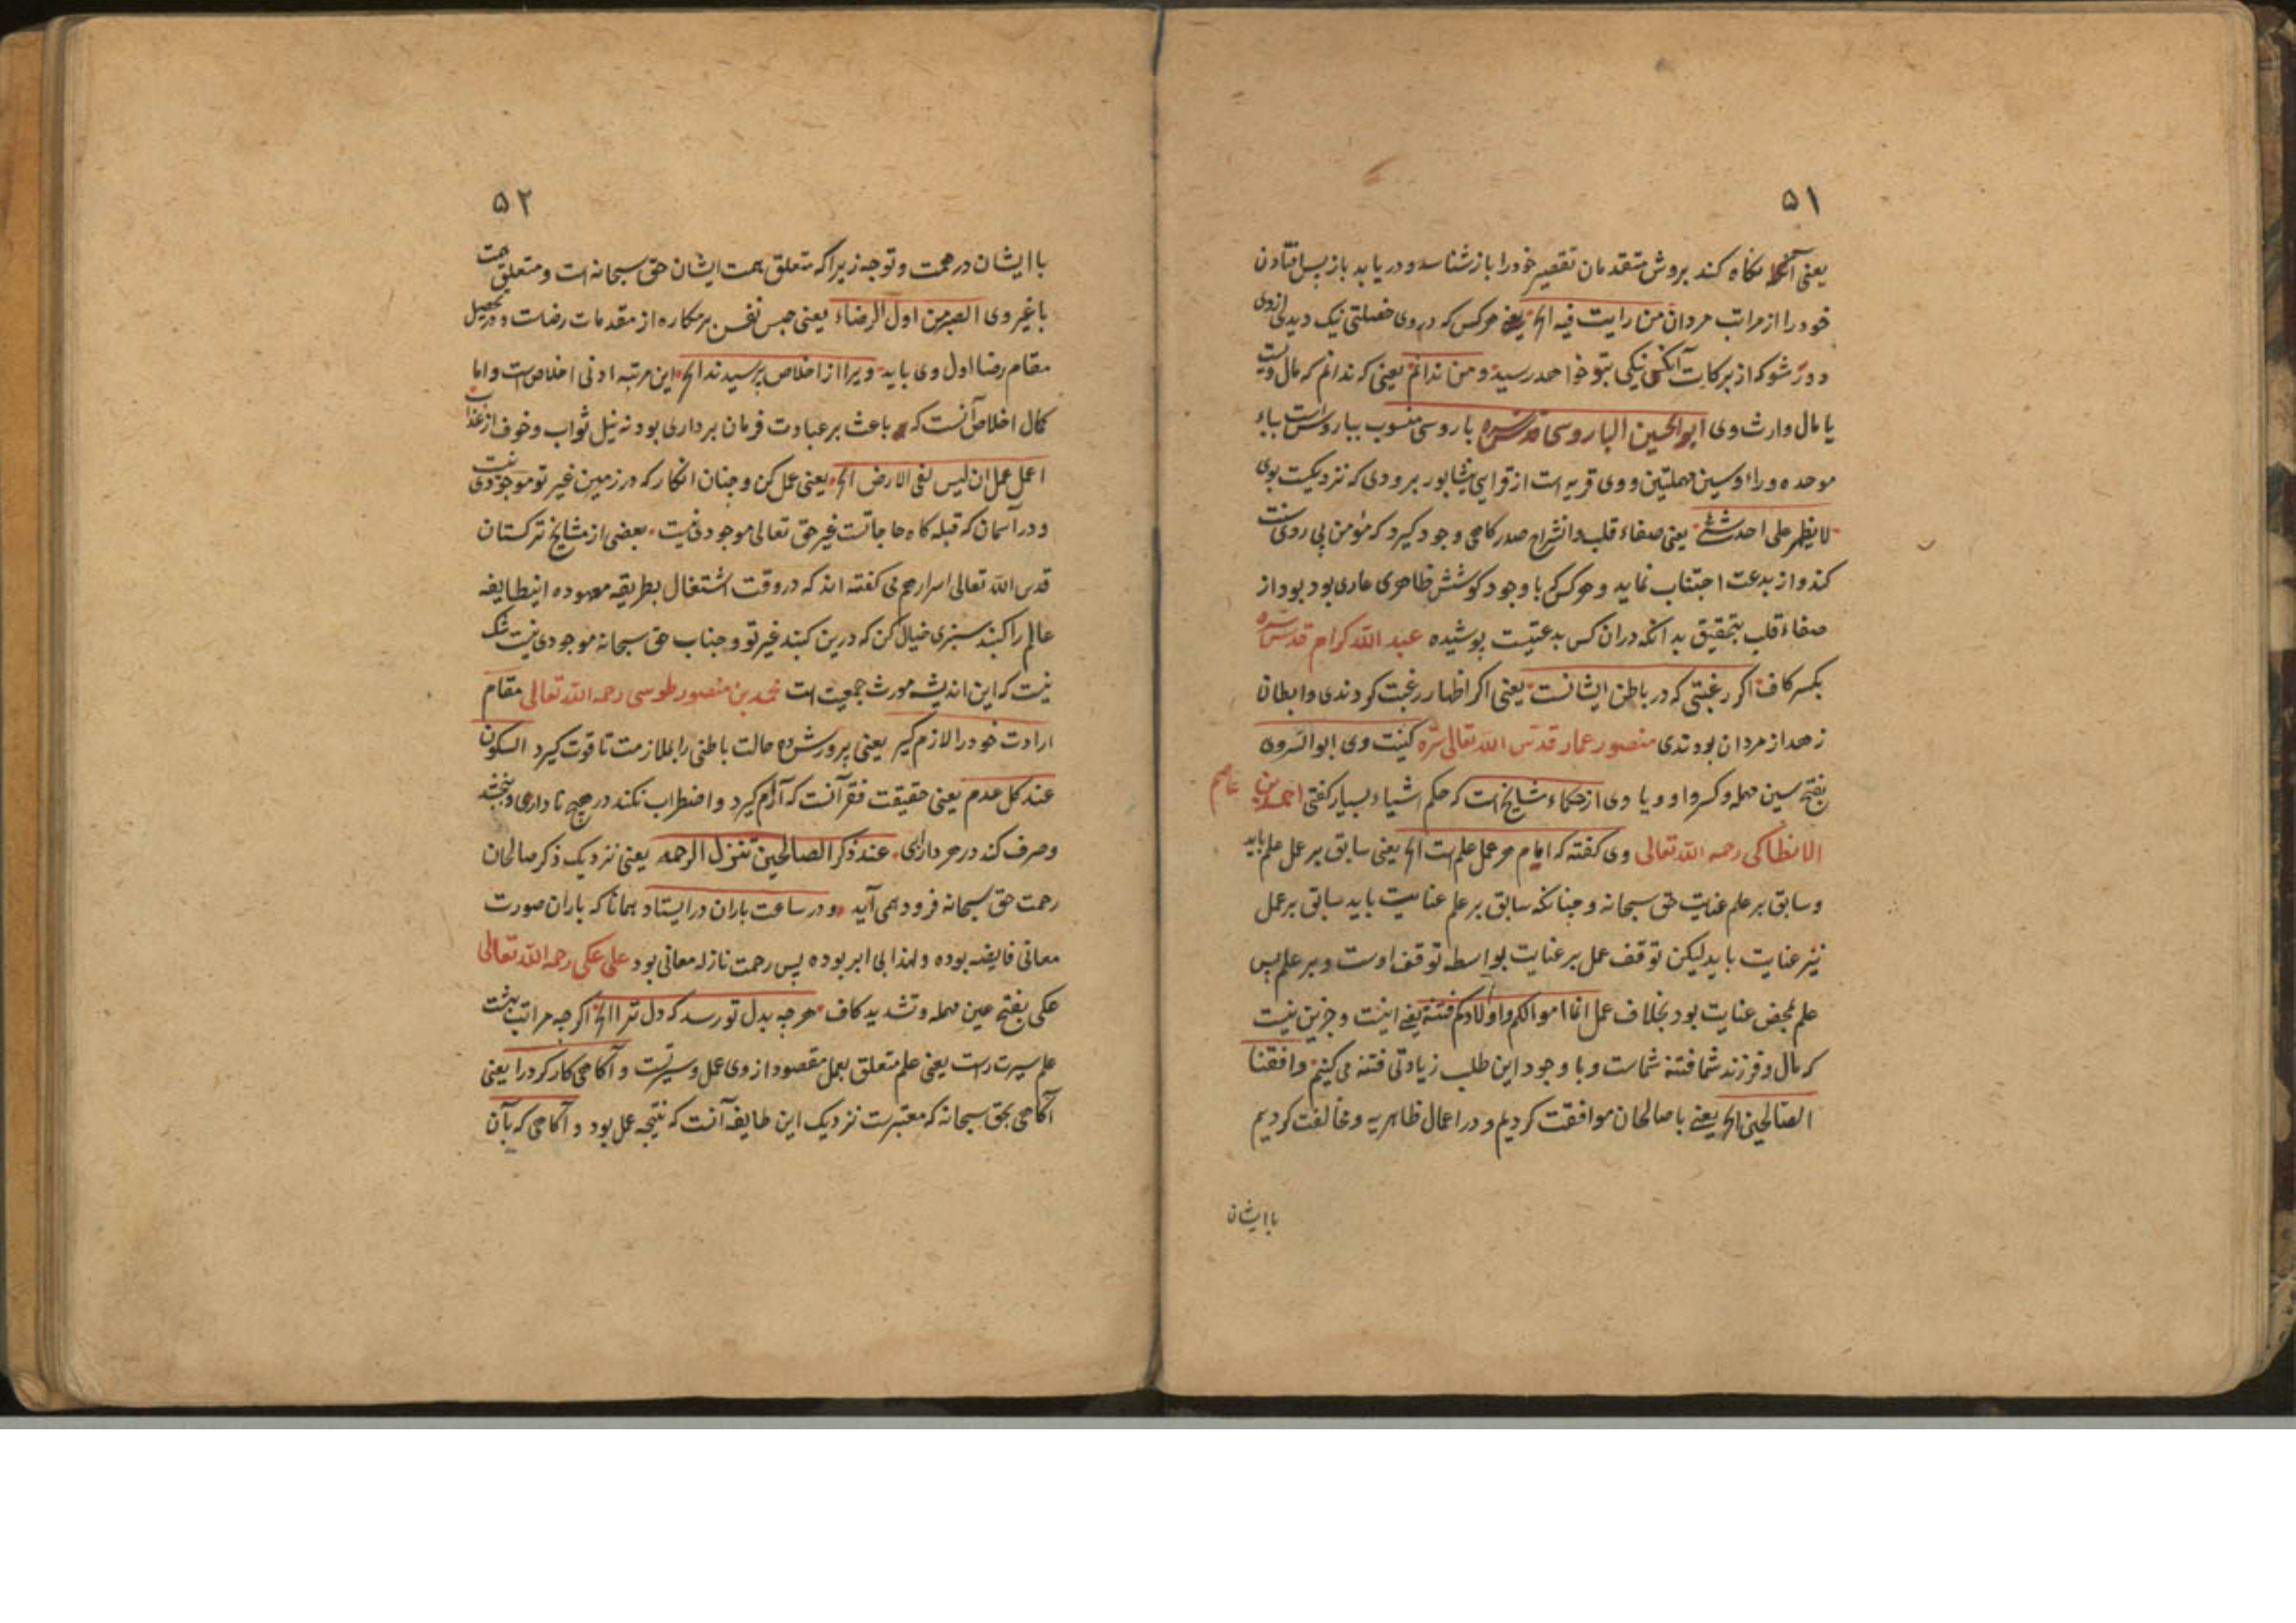 ۵۱
یعنی آنکه نکاه کند بروش متقدمان تقصیر خود را باز شناسد و در یابد باز پس افتادن
خود را از مراتب مردان من رایت فیه الخ یعنی هرکس که در وی خصلتی نیک دیدی از وی
دور مشو که از برکات آنکس نیکی بتو خواهد رسید و من ندانم یعنی که ندانم که مال ویست
یا مال وارث وی ابو الحسین الباروسی قدس سره باروسی منسوب بباروس است بباء
موحده و راء و سین مهملتین و وی قریه است از قرای نیشابور بر ودی که نزدیکست بوی
لا یظهر علی احد شئ یعنی صفاء قلب و انشراح صدر کاهی وجود کیرد که مؤمن پی روی سنت
کند و از بدعت اجتناب نماید و هرکس که با وجود کوشش ظاهری عاری بود بود از
صفاء قلب بتحقیق بدانکه دران کس بدعتیست پوشیده عبد الله کرام قدس سره
بکسر کاف اکر رغبتی که در باطن ایشانست یعنی اکر اظهار رغبت کردندی و ابطان
زهد از مردان بودندی منصور عمار قدس الله تعالی سره کنیت وی ابو السری
بفتح سین مهمله و کسر واو و یا وی از حکماء مشایخ است که حکم اشیاء بسیار کفتی احمد بن عاصم
الانطاکی رحمه الله تعالی وی کفته که امام هر عمل علم است الخ یعنی سابق بر عمل علم باید
و سابق بر علم عنایت حق سبحانه و چنانکه سابق بر علم عنایت باید سابق بر عمل
نیز عنایت باید لیکن توقف عمل بر عنایت بواسطه توقف اوست و بر علم پس
علم بمحض عنایت بود بخلاف عمل انما اموالکم و اولادکم فتنة یعنی اینست و جز این نیست
که مال و فرزند شما فتنه شماست و با وجود این طلب زیادتی فتنه می کنیم وافقنا
الصالحین الخ یعنی با صالحان موافقت کردیم و در اعمال ظاهریه و مخالفت کردیم
با ایشان
۵۲
با ایشان در همت و توجه زیرا که متعلق همت ایشان حق سبحانه است و متعلق همت
با غیر وی الصبر من اول الرضاء یعنی حبس نفس بر مکاره از مقدمات رضاست و در تحصیل
مقام رضا اول وی باید ویرا از اخلاص پرسیدند الخ این مرتبه ادنی اخلاص است و اما
کمال اخلاص آنست که باعث بر عبادت فرمان برداری بود نه نیل ثواب و خوف از عذاب
اعمل عمل ان لیس فی الارض الخ یعنی عمل کن و چنان انکار که در زمین غیر تو موجودی نیست
و در آسمان که قبله کاه حاجاتست غیر حق تعالی موجودی نیست بعضی از مشایخ ترکستان
قدس الله تعالی اسرارهم می کفته اند که در وقت اشتغال بطریقه معهوده اینطایفه
عالم را کنبد سبزی خیال کن که درین کنبد غیر تو و جناب حق سبحانه موجودی نیست شک
نیست که این اندیشه مورث جمعیت است محمد بن منصور طوسی رحمه الله تعالی مقام
ارادت خود را لازم کیر یعنی پرورش ده حالت باطنی را بملازمت تا قوت کیرد السکون
عند کل عدم یعنی حقیقت فقر آنست که آرام کیرد و اضطراب نکند در هیچ ناداری و ببخشد
و صرف کند در هر دارائی عند ذکر الصالحین تنزل الرحمه یعنی نزدیک ذکر صالحان
رحمت حق سبحانه فرود همی آید و در ساعت باران در ایستاد همانا که باران صورت
معانی فایضه بوده و لهذا بی ابر بوده پس رحمت نازله معانی بود علی عکی رحمه الله تعالی
عکی بفتح عین مهمله و تشدید کاف هرچه بدل تو رسد که دل ترا الخ اکرچه مراتب بهشت
علم سیرت راست یعنی علم متعلق بعمل مقصود از وی عمل و سیرتست و آکاهی کار کرد را یعنی
آکاهی بحق سبحانه که معتبرست نزدیک این طایفه آنست که نتیجه عمل بود و آکاهی که بآن